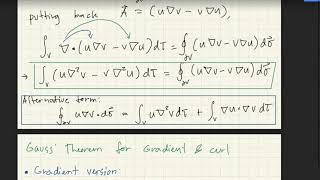 putting back A⃗ = (u∇v − v∇u),
∫_V ∇·(u∇v − v∇u)dτ = ∮_∂V (u∇v − v∇u)dσ⃗
→ ∫_V (u∇²v − v∇²u)dτ = ∮_∂V (u∇v − v∇u)dσ⃗
Alternative form:
∮_∂V u∇v·dσ⃗ = ∫_V u∇²v dτ + ∫_V ∇u·∇v dτ
Gauss' Theorem for Gradient & curl
• Gradient version: